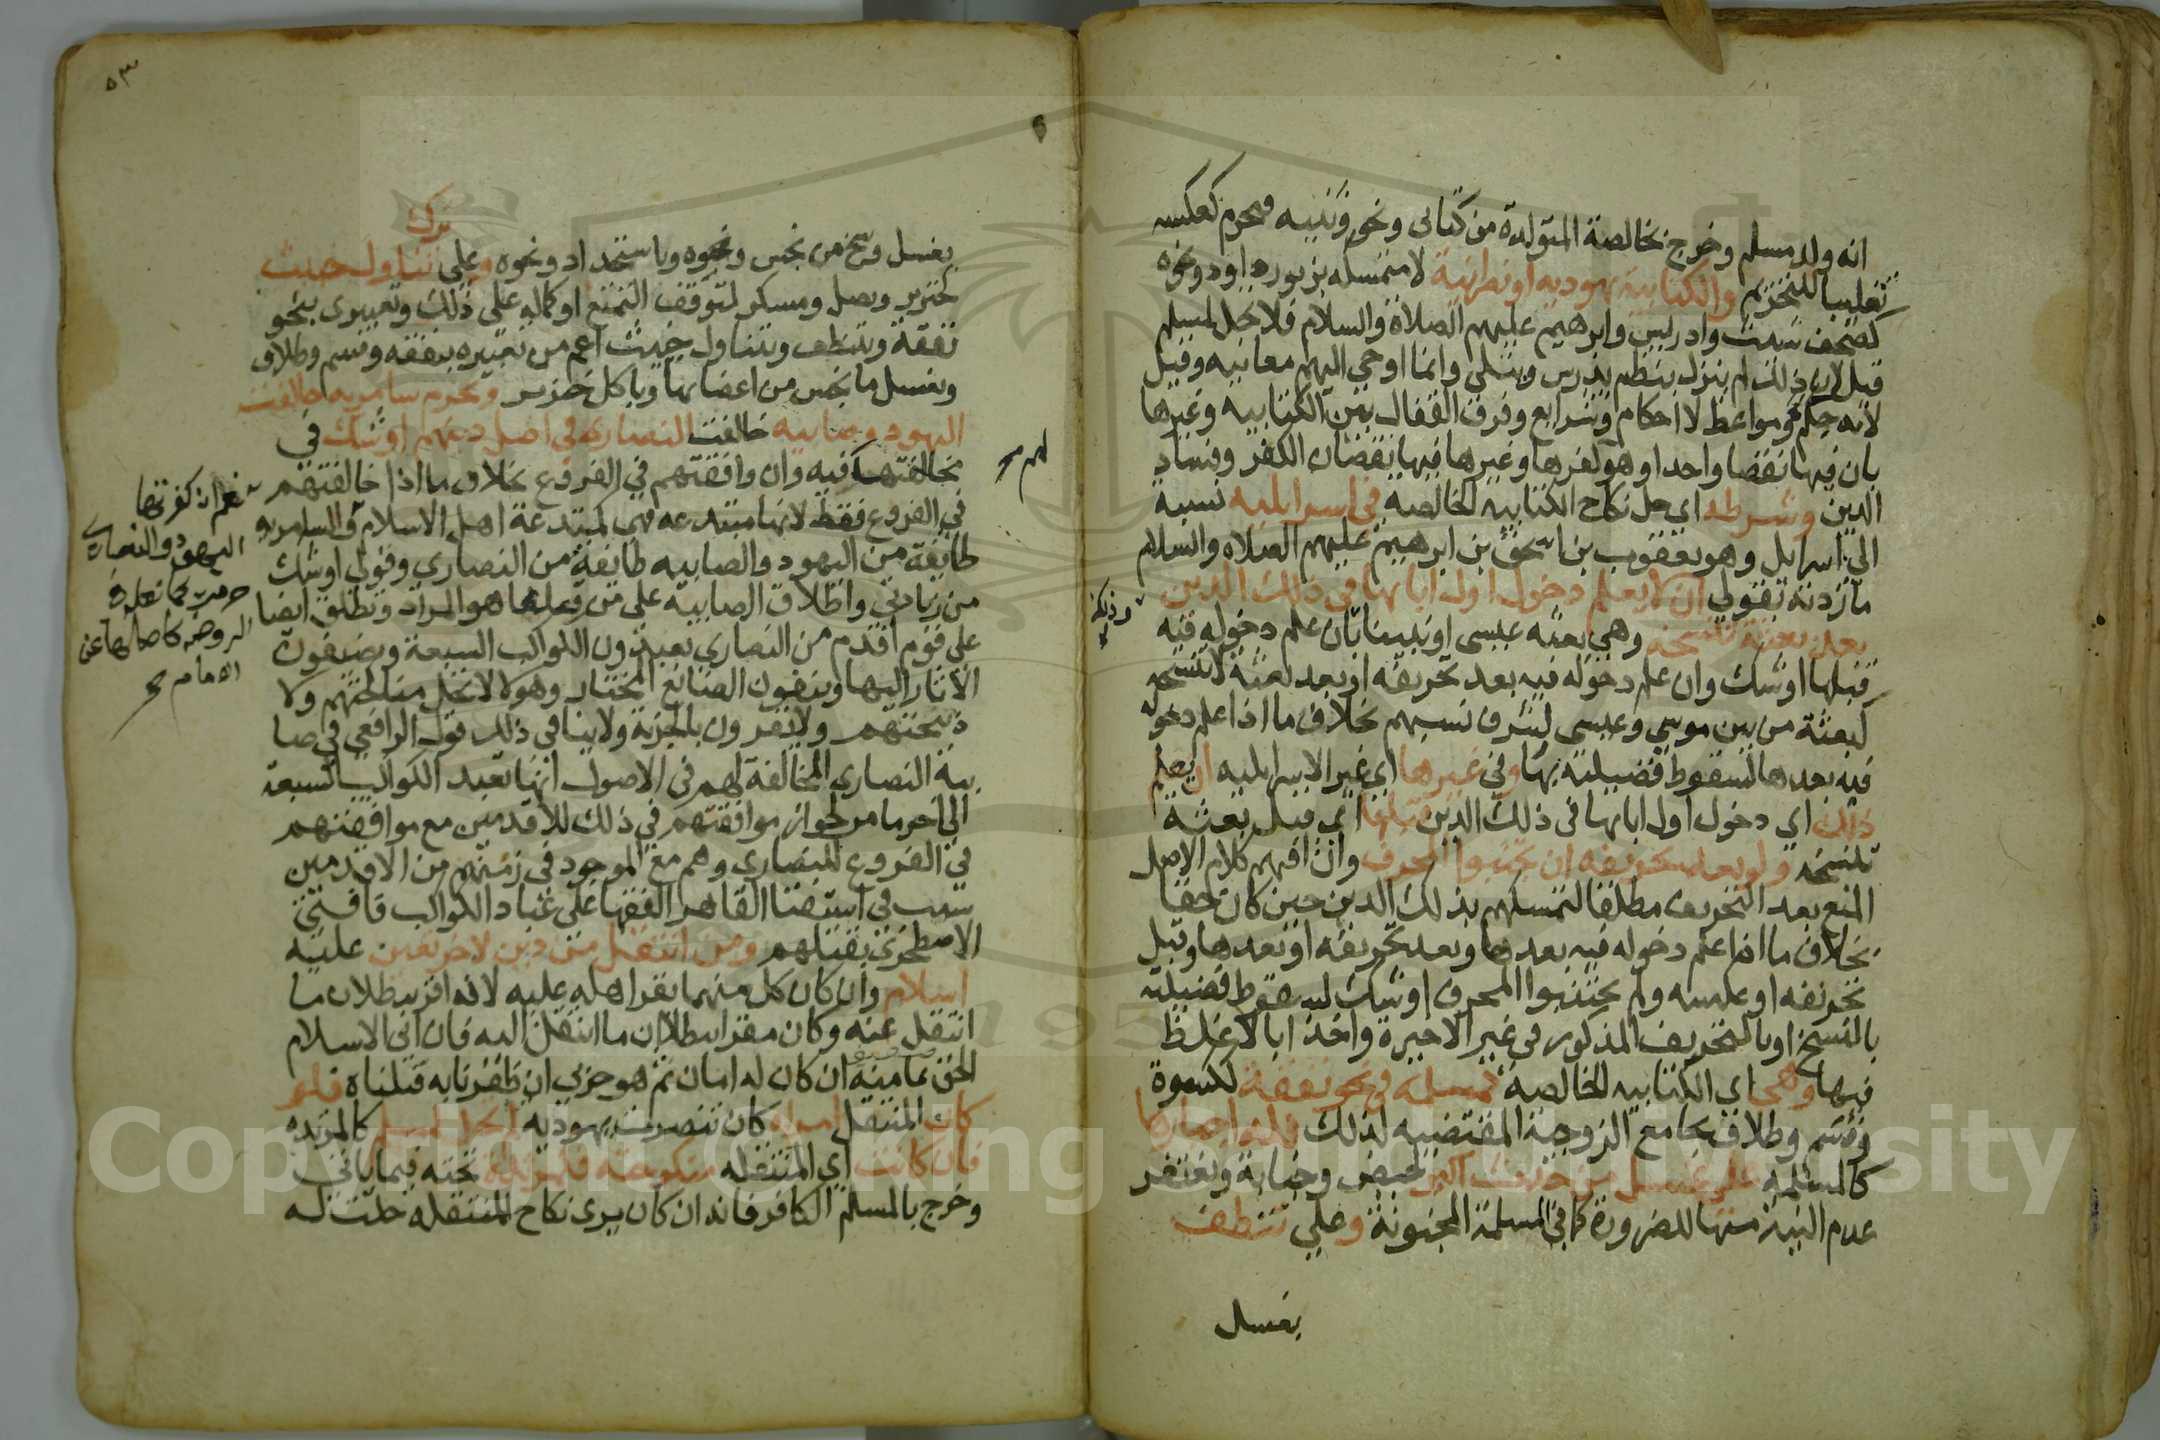 انه ولد مسلم وخرج بخالصة المتولدة من كتابي ونحو وثنية فتحرم كعكسه
تغليبا للتحريم والكتابية يهودية او نصرانية لا متمسكة بزبور داود ونحوه
كصحف شيث وادريس وابرهيم عليهم الصلاة والسلام فلا تحل لمسلم
قيل لان ذلك لم ينزل بنظم يدرس ويتلى وانما اوحي اليهم معانيه وقيل
لانه حكم ومواعظ لا احكام وشرايع وفرق القفال بين الكتابية وغيرها
بان فيها نقصا واحدا وهو كفرها وغيرها فيها نقصان الكفر وفساد
الدين وشرطه اي حل نكاح الكتابية الخالصة في اسرايلية نسبة
الى اسرايل وهو يعقوب بن اسحق بن ابرهيم عليهم الصلاه والسلام
ما زدته بقولي ان لا يعلم دخول اول ابايها في ذلك الدين
بعد بعثة تنسخه وهي بعثة عيسى او نبينا بان علم دخوله فيه
قبلها او شك وان علم دخوله فيه بعد تحريفه او بعد بعثة لا تنسخه
كبعثة من بين موسى وعيسى لشرف نسبهم بخلاف ما اذا علم دخوله
فيه بعدها لسقوط فضيلته بها وفي غيرها اي غير الاسرايلية ان يعلم
ذلك اي دخول اول ابايها في ذلك الدين قبلها اي قبل بعثة
تنسخه ولو بعد تحريفه ان تجنبوا المحرف وان افهم كلام الاصل
المنع بعد التحريف مطلقا لتمسكهم بذلك الدين حين كان حقا
بخلاف ما اذا علم دخوله فيه بعدها وبعد تحريفه او بعدها وقبل
تحريفه او عكسه ولم يجتنبوا المحرف او شك لسقوط فضيلته
بالنسخ او بالتحريف المذكور في غير الاخيرة واخذا بالاغلظ
فيها وهي اي الكتابية الخالصة كمسلمة في نحو نفقة لكسوة
وقسم وطلاق بجامع الزوجية المقتضية لذلك فله اجبارها
كالمسلمة على غسل من حدث اكبر لحيض وجنابة ويغتفر
عدم النية منها للضرورة كما في المسلمة المجنونة وعلى تنظف
يغسل
وذلك
٥٣
ترك
بغسل وسخ من نجس ونحوه وباستحداد ونحوه وعلى تناول خبيث
كخنزير وبصل ومسكر لتوقف التمتع او كماله على ذلك وتعبيري بنحو
نفقة وبتنظف وبتناول خبيث اعم من تعبيره بنفقة وقسم وطلاق
وبغسل ما نجس من اعضايها وباكل خنزير وتحرم سامرية خالفت
اليهود وصابيه خالفت النصارى في اصل دينهم او شك في
مخالفتها فيه وان وافقتهم في الفروع بخلاف ما اذا خالفتهم
في الفروع فقط لانها مبتدعة فهي كمبتدعة اهل الاسلام والسامرية
طايفة من اليهود والصابيه طايفة من النصارى وقولي او شك
من زيادتي واطلاق الصابية على من فعلها هو المراد وتطلق ايضا
على قوم اقدم من النصارى يعبدون الكواكب السبعة ويضيفون
الاثار اليها وينفون الصانع المختار وهولا لا تحل مناكحتهم ولا
ذبيحتهم ولا يقرون بالجزية ولا ينافي ذلك قول الرافعي في صا
بية النصارى المخالفة لهم في الاصول انها تعبد الكواكب السبعة
الى اخر ما مر لجواز موافقتهم في ذلك للاقدمين مع موافقتهم
في الفروع للنصارى وهم مع الموجود في زمنهم من الاقدمين
سبب في استفتا القاهر الفقها على عباد الكواكب فافتى
الاصطخري بقتلهم ومن انتقل من دين لاخر تعين عليه
اسلام وان كان كل منهما يقر اهله عليه لانه اقر ببطلان ما
انتقل عنه وكان مقرا ببطلان ما انتقل اليه فان ابى الاسلام
الحق بمامنه ان كان له امان ثم هو حربي ان ظفرنا به قتلناه فلو
كان المنتقل امراة كان تنصرت يهودية لم تحل لمسلم كالمرتدة
فان كانت اي المنتقلة منكوحته فكمرتدة تحته فيما ياتي
وخرج بالمسلم الكافر فانه ان كان يرى نكاح المنتقلة حلت له
نعم ان كفرتها
اليهود والنصارى
حرمت كما نقله في
الروضة كاصلها عن
الامام